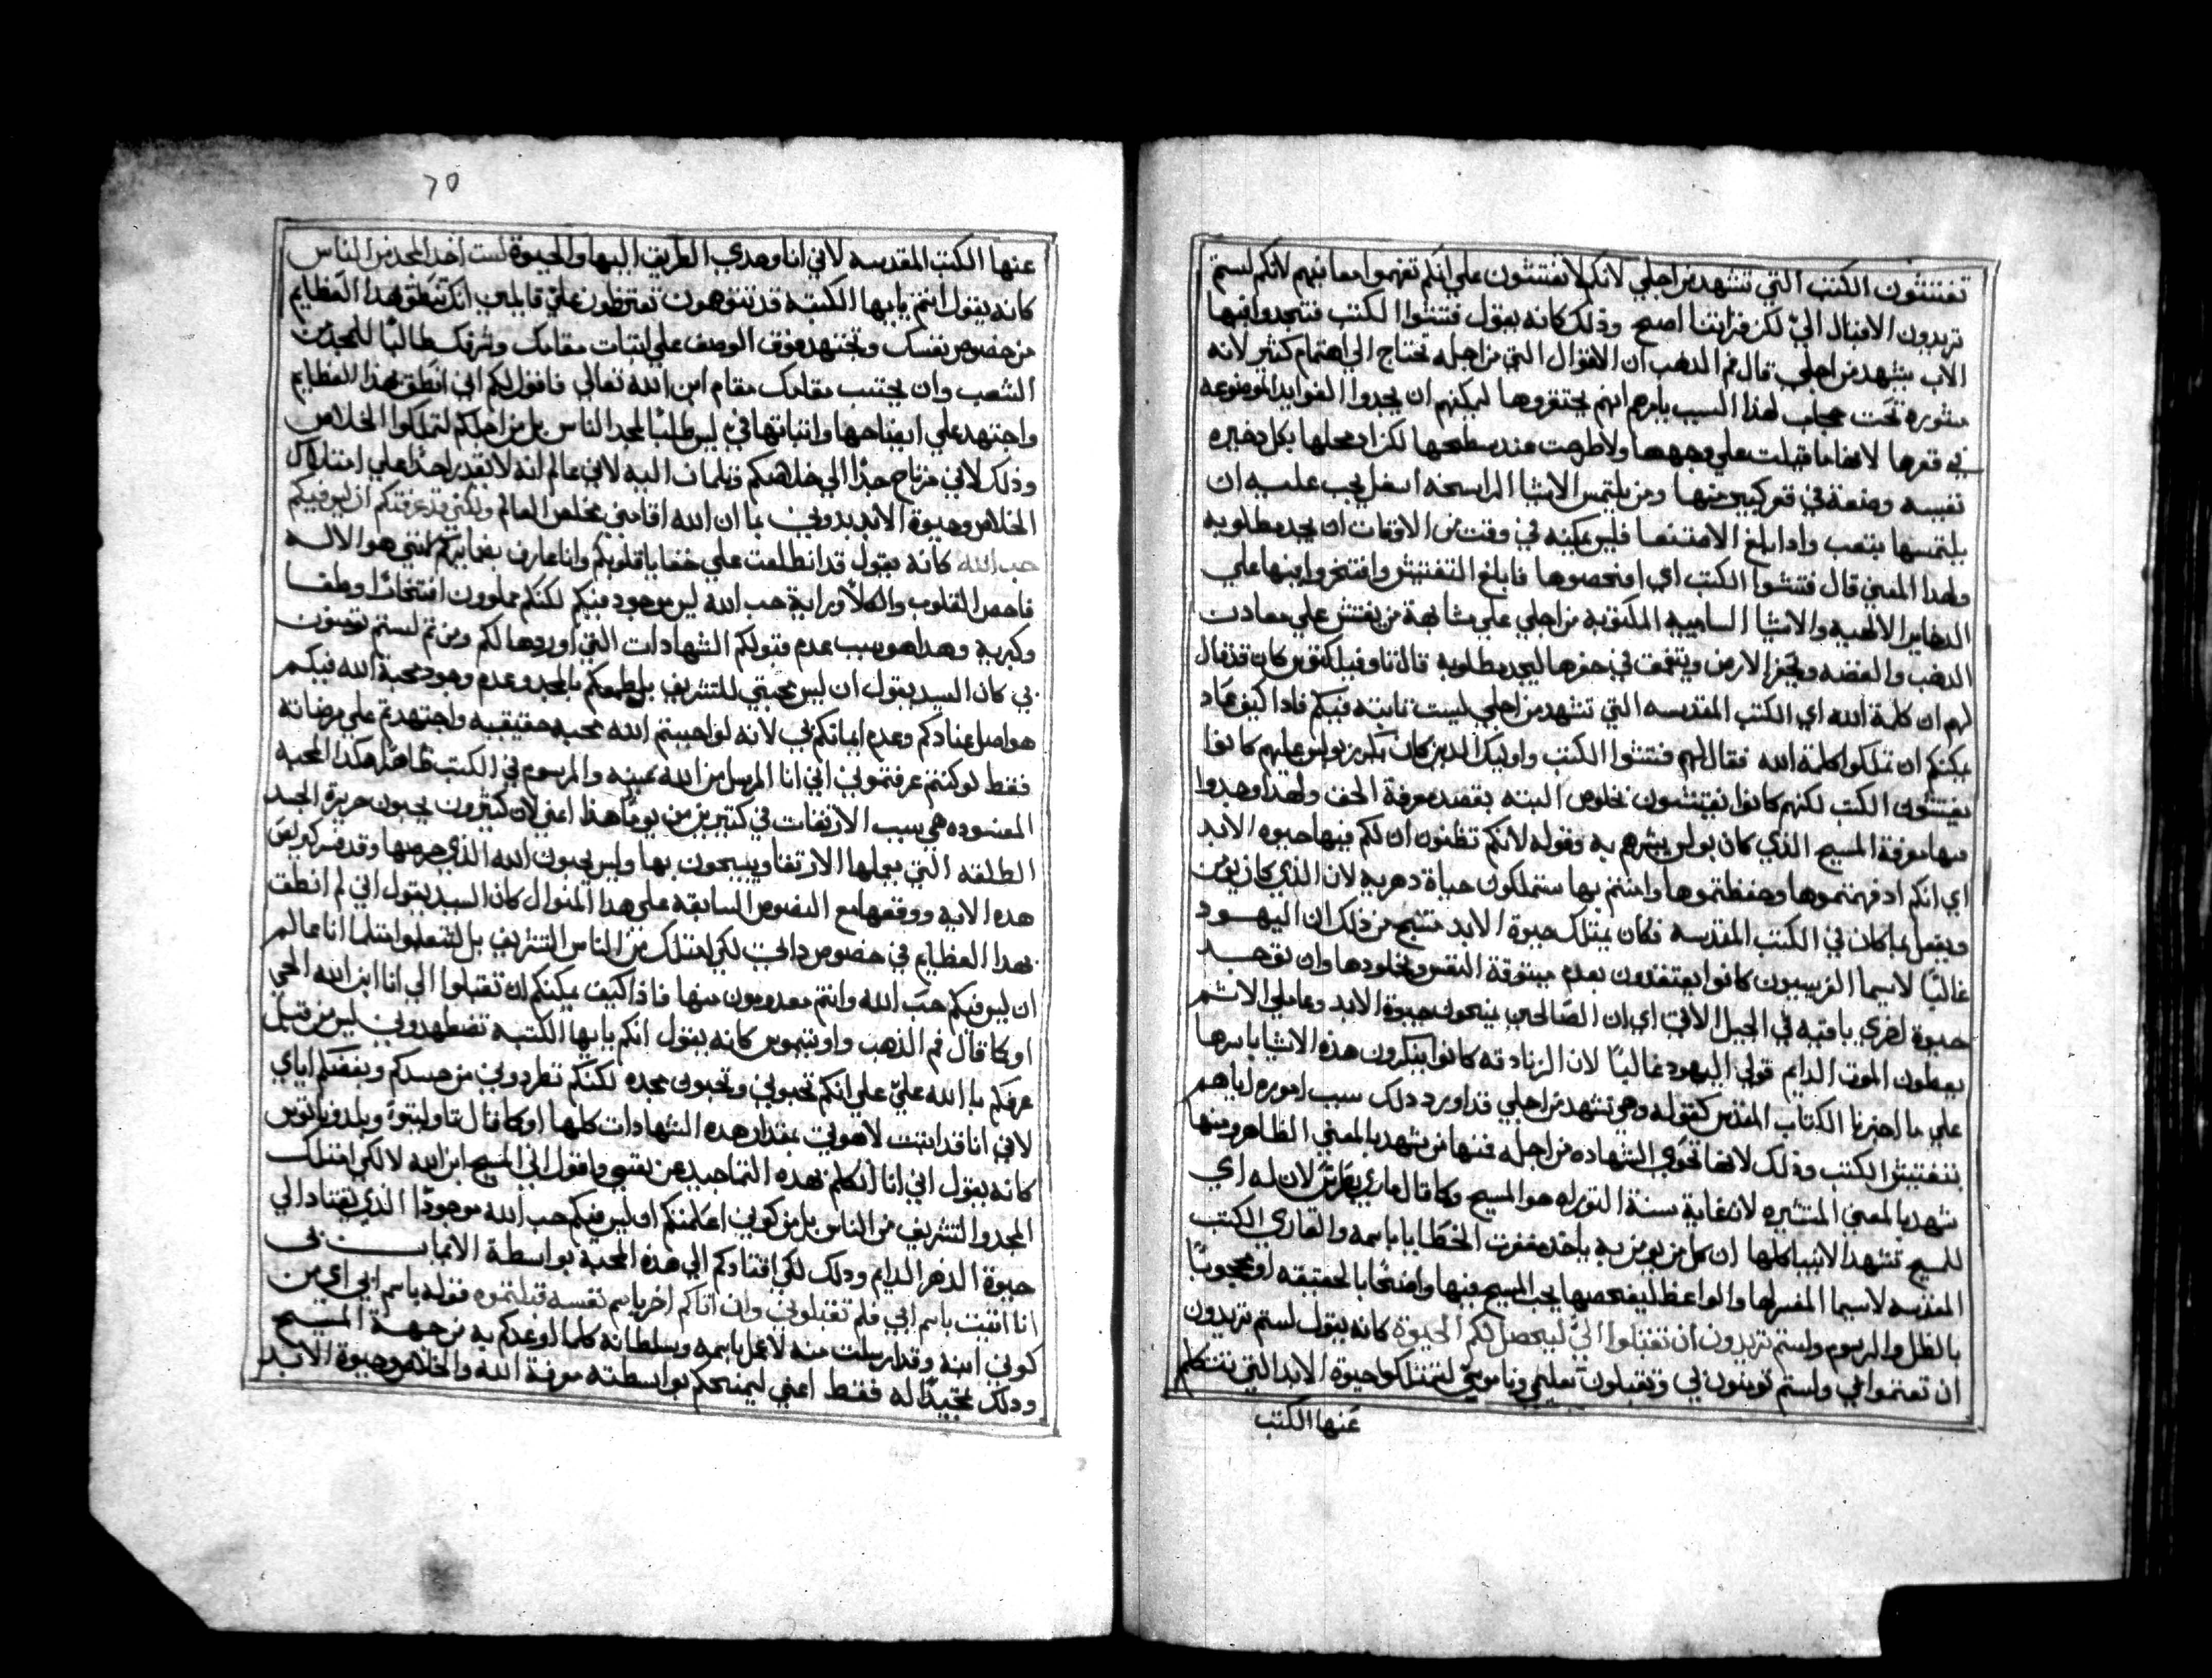 تفتشون الكتب التي تشهد من اجلي لانكم لا تفتشون علي انكم تفهموا معانيهم لانكم لستم
تريدون الاقبال اليّ لكن قراتنا اصح وذلك كانه يقول فتشوا الكتب فتجدوا فيها
الاب يشهد من اجلي قال فم الدهب ان الاقوال التي من اجله تحتاج الي اهتمام كثير لانه
مستوره تحت حجاب لهذا السبب يامرهم انهم يحتفروها ليمكنهم ان يجدوا الفوايد الموضوعه
في قعرها لانها ما قيلت علي وجهها ولا طرحت عند سطحها لكن ادمحلها بكل دخيره
نفيسه وضعة في قعر كبير منها ومن يلتمس الاشيا الراسخه اسفل يجب عليه ان
يلتمسها بتعب وادا بلغ الا مقنعا فليس يمكنه في وقت من الاوقات ان يجد مطلوبه
ولهدا المعني قال فتشوا الكتب اي افحصوها فابلغ التفتيش وافتخروا فيها علي
الدخاير الالهية والاشيا السامية المكتوبه من اجلي علي مشابهة من يفتش علي معادن
الدهب والفضه ويحفر الارض ويتعمق في حفرها ليجد مطلوبه قال تاوفيلكتوس كان قد قال
لهم ان كلمة الله اي الكتب المقدسه التي تشهد من اجلي ليست ثابته فيكم فاداً كيف عاد
يمكنكم ان تملكوا كلمة الله فقال لهم فتشوا الكتب واوليك الدين كان يكرز بولس عليهم كانوا
يفتشون الكتب لكنهم كانوا يفتشون بخلوص البته بقصد معرفة الحق ولهدا وجدوا
فيها معرفة المسيح الذي كان بولس يبشرهم به وقوله لانكم تظنون ان لكم فيها حيوه الابد
اي انكم اد فهمتموها وحفظتموها وامنتم بها ستملكون حياة دهريه لان الذي كان يومن
ويعمل بما كان في الكتب المقدسه فكان يمتلك حيوة الابد فينتج من ذلك ان اليهود
غالبًا لاسيما الفريسيون كانوا يعتقدون بعدم ميتوتة النفس وبخلودها وان توجد
حيوة اخري باقيه في الجيل الاتي اي ان الصالحين يمنحون حيوة الابد وعاملي الاثم
يعطون الموت الدايم قولي اليهود غالبًا لان الزنادقه كانوا ينكرون هذه الاشيا باسرها
علي ما اخبرنا الكتاب المقدس كقوله وهي تشهد من اجلي قد اورد دلك سبب اموره اياهم
بتفتيش الكتب ودلك لانها تحوي الشهاده من اجله فمنها من يشهد بالمعني الظاهر ومنها
تشهد بالمعني المستتره لان غاية سنة التوراه هو المسيح وكما قال ماري بطرس لان له اي
للمسيح تشهد الانبيا كلها ان كل من يومن به ياخد مغفرت الخطايا باسمه والقاري الكتب
المقدسه لاسيما المفسر لها والواعظ ليفحصها يجب المسيح فيها واضحًا بالحقيقه او محجوبًا
بالظل والرسوم ولستم تريدون ان تقبلوا اليّ ليحصل لكم الحيوة كانه يقول لستم تريدون
ان تعتموا في ولستم تومنون بي وتقبلون تعليمي وناموسي لتمتلكوا حيوة الابد التي يتكلم
عنها الكتب
٦٥
عنها الكتب المقدسه لاني انا وحدي الطريق اليها والحيوة لست اخد المجد من الناس
كانه يقول انتم يا ايها الكتبه قد تتوهمون تعترضون عليّ قايلين انك تنطق بهذا العظايم
من خصوص نفسك وتجتهد فوق الوصف علي اثبات مقامك وشرفك طالبًا للمجد من
الشعب وان يحتسب مقامك مقام ابن الله تعالي فاقول لكم اني انطق بهذا العظايم
واجتهد علي ايضاحها واثباتها فيّ ليس طلبًا لمجد الناس بل من اجلكم لتملكوا الخلاص
وذلك لاني مرتاح جدًا الي خلاصكم وظمان اليه لاني عالم انه لا يقدر احدًا علي امتلاك
الخلاص وحيوة الابد بدوني بما ان الله اقامني مخلص العالم ولكني قد عرفتكم ان ليس فيكم
حب الله كانه يقول قد اطلعت علي خفايا قلوبكم وانا عارف بضمايركم لانني هو الاله
فاحص القلوب والكلا ورايت حب الله ليس موجود فيكم لكنكم مملوون افتخارًا وطغيا
وكبريه وهدا هو سبب عدم قبولكم الشهادات التي اوردها لكم ومن ثم لستم تومنون
بي كان السيد يقول ان ليس محبتي للتشريف بل طمعكم بالمجد وعدم وجود محبة الله فيكم
هو اصل عنادكم وعدم ايمانكم بي لانه لو احببتم الله محبه حقيقيه واجتهدتم علي مرضاته
فقط لو كنتم عرفتموني اني انا المرسل من الله عينه والمرسوم في الكتب ظاهرًا هكدا المحبه
المفسوده هي سبب الارتفات في كثيرين من يومنا هذا اعني لان كثيرون يحبون حرية الجسد
الطلقه التي يمملها الارتقا ويسبحون بها وليس يحبون الله الذي حرمها وقد فسر كوبس
هده الايه ووقفها مع النصوص السابقه علي هذا المنوال كان السيد يقول اني لم انطق
بهدا العظايم في خصوص داتي لكي امتلك من الناس التشريف بل لتفعلوا مثلما انا عالم
ان ليس فيكم حبّ الله وانتم معدومون منها فادًا كيف يمكنكم ان تقبلوا الي انا ابن الله الحي
او كما قال فم الذهب واوتيموس كانه يقول انكم يا ايها الكتبه تضطهدوني ليس من قبل
عرفكم بالله عليّ علي انكم تحبوني وتحبون مجده لكنكم تطردوني من حسدكم وبغضكم اياي
لاني انا قد اثبتت لاهوتي بمقدار هده الشهادات كلها او كما قال تاوليتوة وبلدوناتوس
كانه يقول اني انا اتكلم بهده التماجيد عن نفسي واقول اني المسيح ابن الله لا لكي امتلك
المجد والتشريف من الناس بل من كوني اعلمنكم ان ليس فيكم حب الله موجودًا الذي يقتاد الي
حيوة الدهر الدايم ودلك لكي اقتادكم الي هذه المحبه بواسطة الايمان بي
انا اتيت باسم ابي فلم تقبلوني وان اتاكم اخر باسم نفسه قبلتموه فقوله باسم ابي اي من
كوني ابنه وقد ارسلت منه لاعمل باسمه وبسلطانه كلما اوعدكم به من جهة المسيح
ودلك تمجيدًا له فقط اعني ليمنحكم بواسطته معرفة الله والخلاص وحيوة الابد